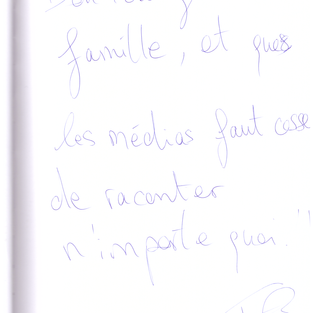 famille, et ques
les médias faut cesse
de raconter
n'importe quoi."